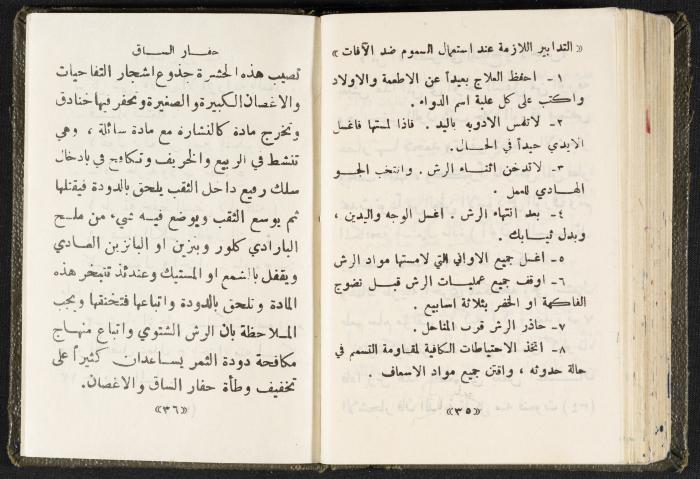 « التدابير اللازمة عند استعمال السموم ضد الآفات »
١- احفظ العلاج بعيداً عن الاطعمة والاولاد
واكتب على كل علبة اسم الدواء .
٢- لاتلمس الادوية باليد . فاذا لمستها فاغسل
الايدي جيداً في الحال .
٣- لاتدخن اثناء الرش . وانتخب الجو
الهادي للعمل .
٤- بعد انتهاء الرش . اغسل الوجه واليدين ،
وبدل ثيابك .
٥- اغسل جميع الاواني التي لامستها مواد الرش
٦- اوقف جميع عمليات الرش قبل نضوج
الفاكهة او الخضر بثلاثة اسابيع .
٧- حاذر الرش قرب المناحل .
٨- اتخذ الاحتياطات الكافية لمقاومة التسمم في
حالة حدوثه ، واقتن جميع مواد الاسعاف .
«٣٥»
حفار الساق
تصيب هذه الحشرة جذوع اشجار التفاحيات
والاغصان الكبيرة والصغيرة وتحفر فيها خنادق
وتخرج مادة كالنشارة مع مادة سائلة ، وهي
تنشط في الربيع والخريف وتكافح في بادخال
سلك رفيع داخل الثقب يلحق بالدودة فيقتلها
ثم يوسع الثقب ويوضع فيه شيء من ملح
البارادي كلور وبنزين او البانزين العادي
ويقفل بالشمع او المستيك وعندئذ تتبخر هذه
المادة وتلحق بالدودة واتباعها فتخنقها ويجب
الملاحظة بان الرش الشتوي واتباع منهاج
مكافحة دودة الثمر يساعدان كثيراً على
تخفيف وطأة حفار الساق والاغصان.
«٣٦»